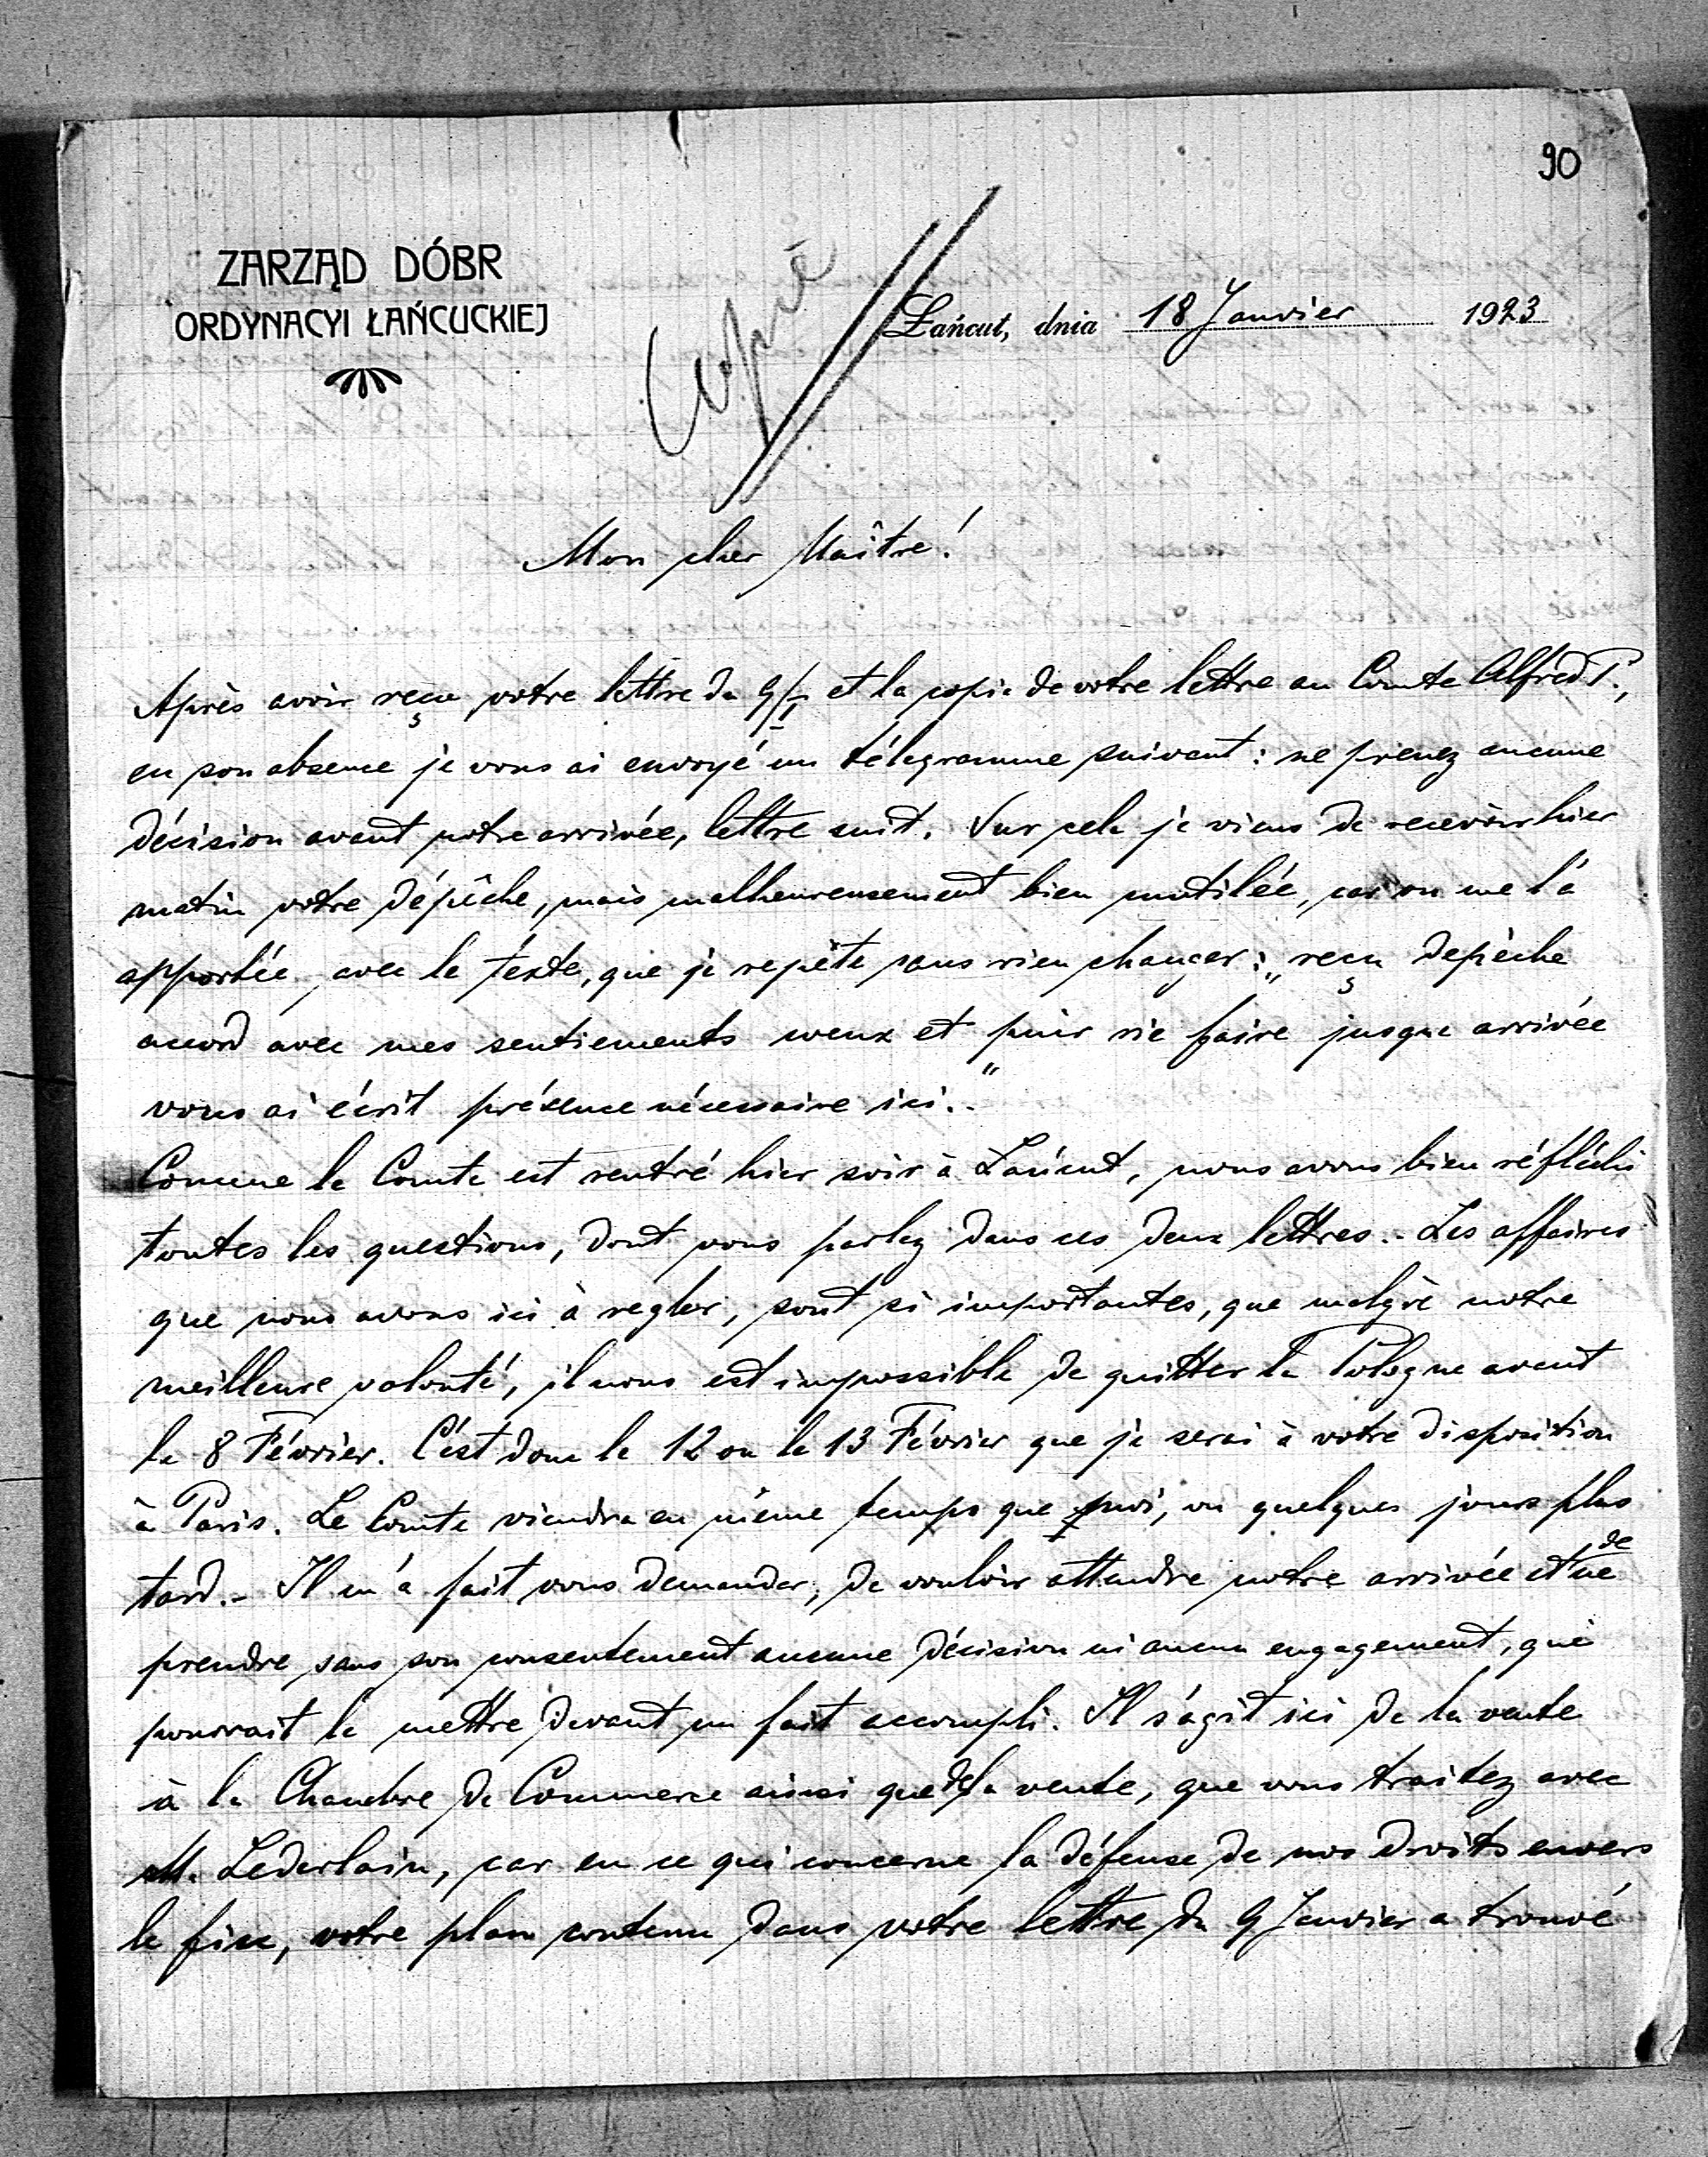 90
ZARZĄD DÓBR
ORDYNACYI ŁAŃCUCKIEJ
Copié
Łańcut, dnia 18 Janvier 1923
Mon cher Maître!
Après avoir reçu votre lettre du 9/I et la copie de votre lettre au Comte Alfred P.,
en son absence je vous ai envoyé un télegramme suivant: ne prenez aucune
décision avant notre arrivée, lettre suit. Sur cela je viens de recevoir hier
matin votre dépêche, mais malheureusement bien mutilée, car on me l'a
apportée avec le texte, que je repète sans rien changer: „reçu depêche
accord avec mes sentiements weux et puir rie faire jusque arrivée
vous ai écrit présence nécessaire ici."-
Comme le Comte est rentré hier soir à Łańcut, nous avons bien réfléchi
toutes les questions, dont vous parlez dans ces deux lettres.- Les affaires
que nous avons ici à regler, sont si importantes, que malgrè notre
meilleure volonté, il nous est impossible de quitter la Pologne avant
le 8 Février. C'est donc le 12 ou le 13 Février que je serai à votre disposition
à Paris. Le Comte viendra en même temps que moi, ou quelques jours plus
tard.- Il m'a fait vous demander, de vouloir attendre notre arrivée et de ne
prendre sans son consentement aucune décision ni aucun engagement, qui
pourrait le mettre devant un fait accompli. Il s'agit ici de la vente
à la Chambre de Commerce ainsi que de la vente, que vous traitez avec
M. Lederlain, car en ce qui concerne la défense de nos droits envers
le fisc, votre plan contenu dans votre lettre du 9 Janvier a trouvé